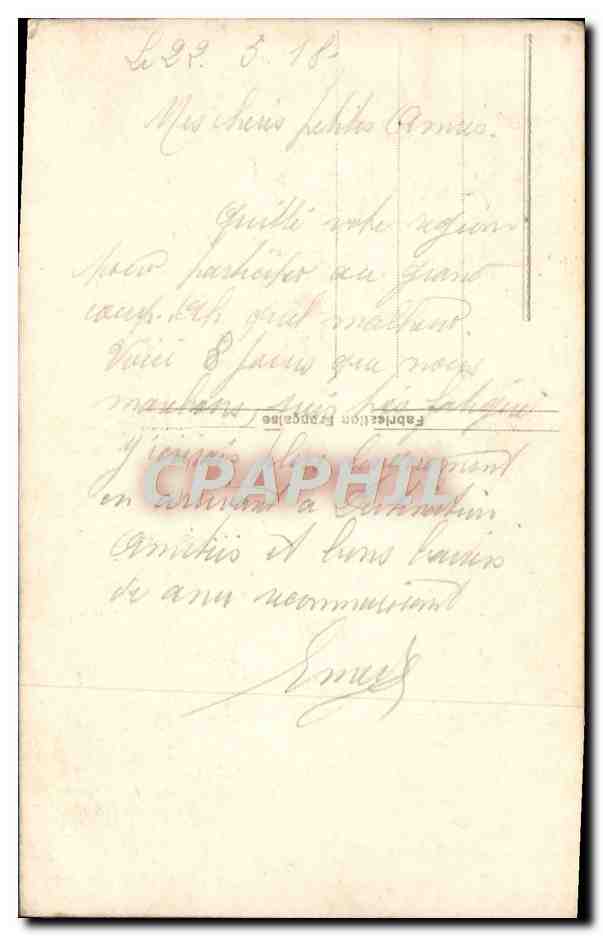 Le 22. 5. 18.
Mes chéris petites Amies.
quitté votre région
pour participer au grand
coup. Ah quel malheur.
Voici 8 jours que nous
marchons, suis très fatigué
J'écrirais plus longuement
en arrivant a Destination
Amitiés et bons baisers
de ami reconnaissant
Fabrication Française
CPAPHIL